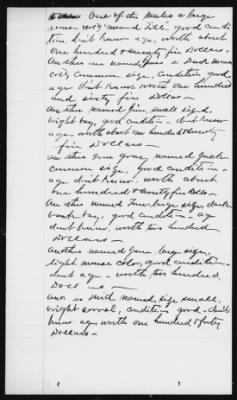 One of the mules a large
mouse cold, named Till, good condi-
tion, dont know age, worth about
one hundred & seventy five Dollars -
Another one named a Dark mouse
cold, common size, condition good,
age dont know worth one hundred
and sixty five Dollars -
Another named small sized,
bright bay, good condition - dont know
age - worth about one hundred & seventy
five Dollars -
Another gray, named Jack
common size, good condition -
age dont know - worth about
one hundred & seventy five Dolls -
Another named large size, dark
bay, good condition - age
dont know, worth two hundred
Dollars -
Another named large size,
light mouse color, good condition -
dont age - worth two hundred
Dollars -
named, size small,
bright sorrel, condition good - dont
know age worth one hundred & forty
Dollars -